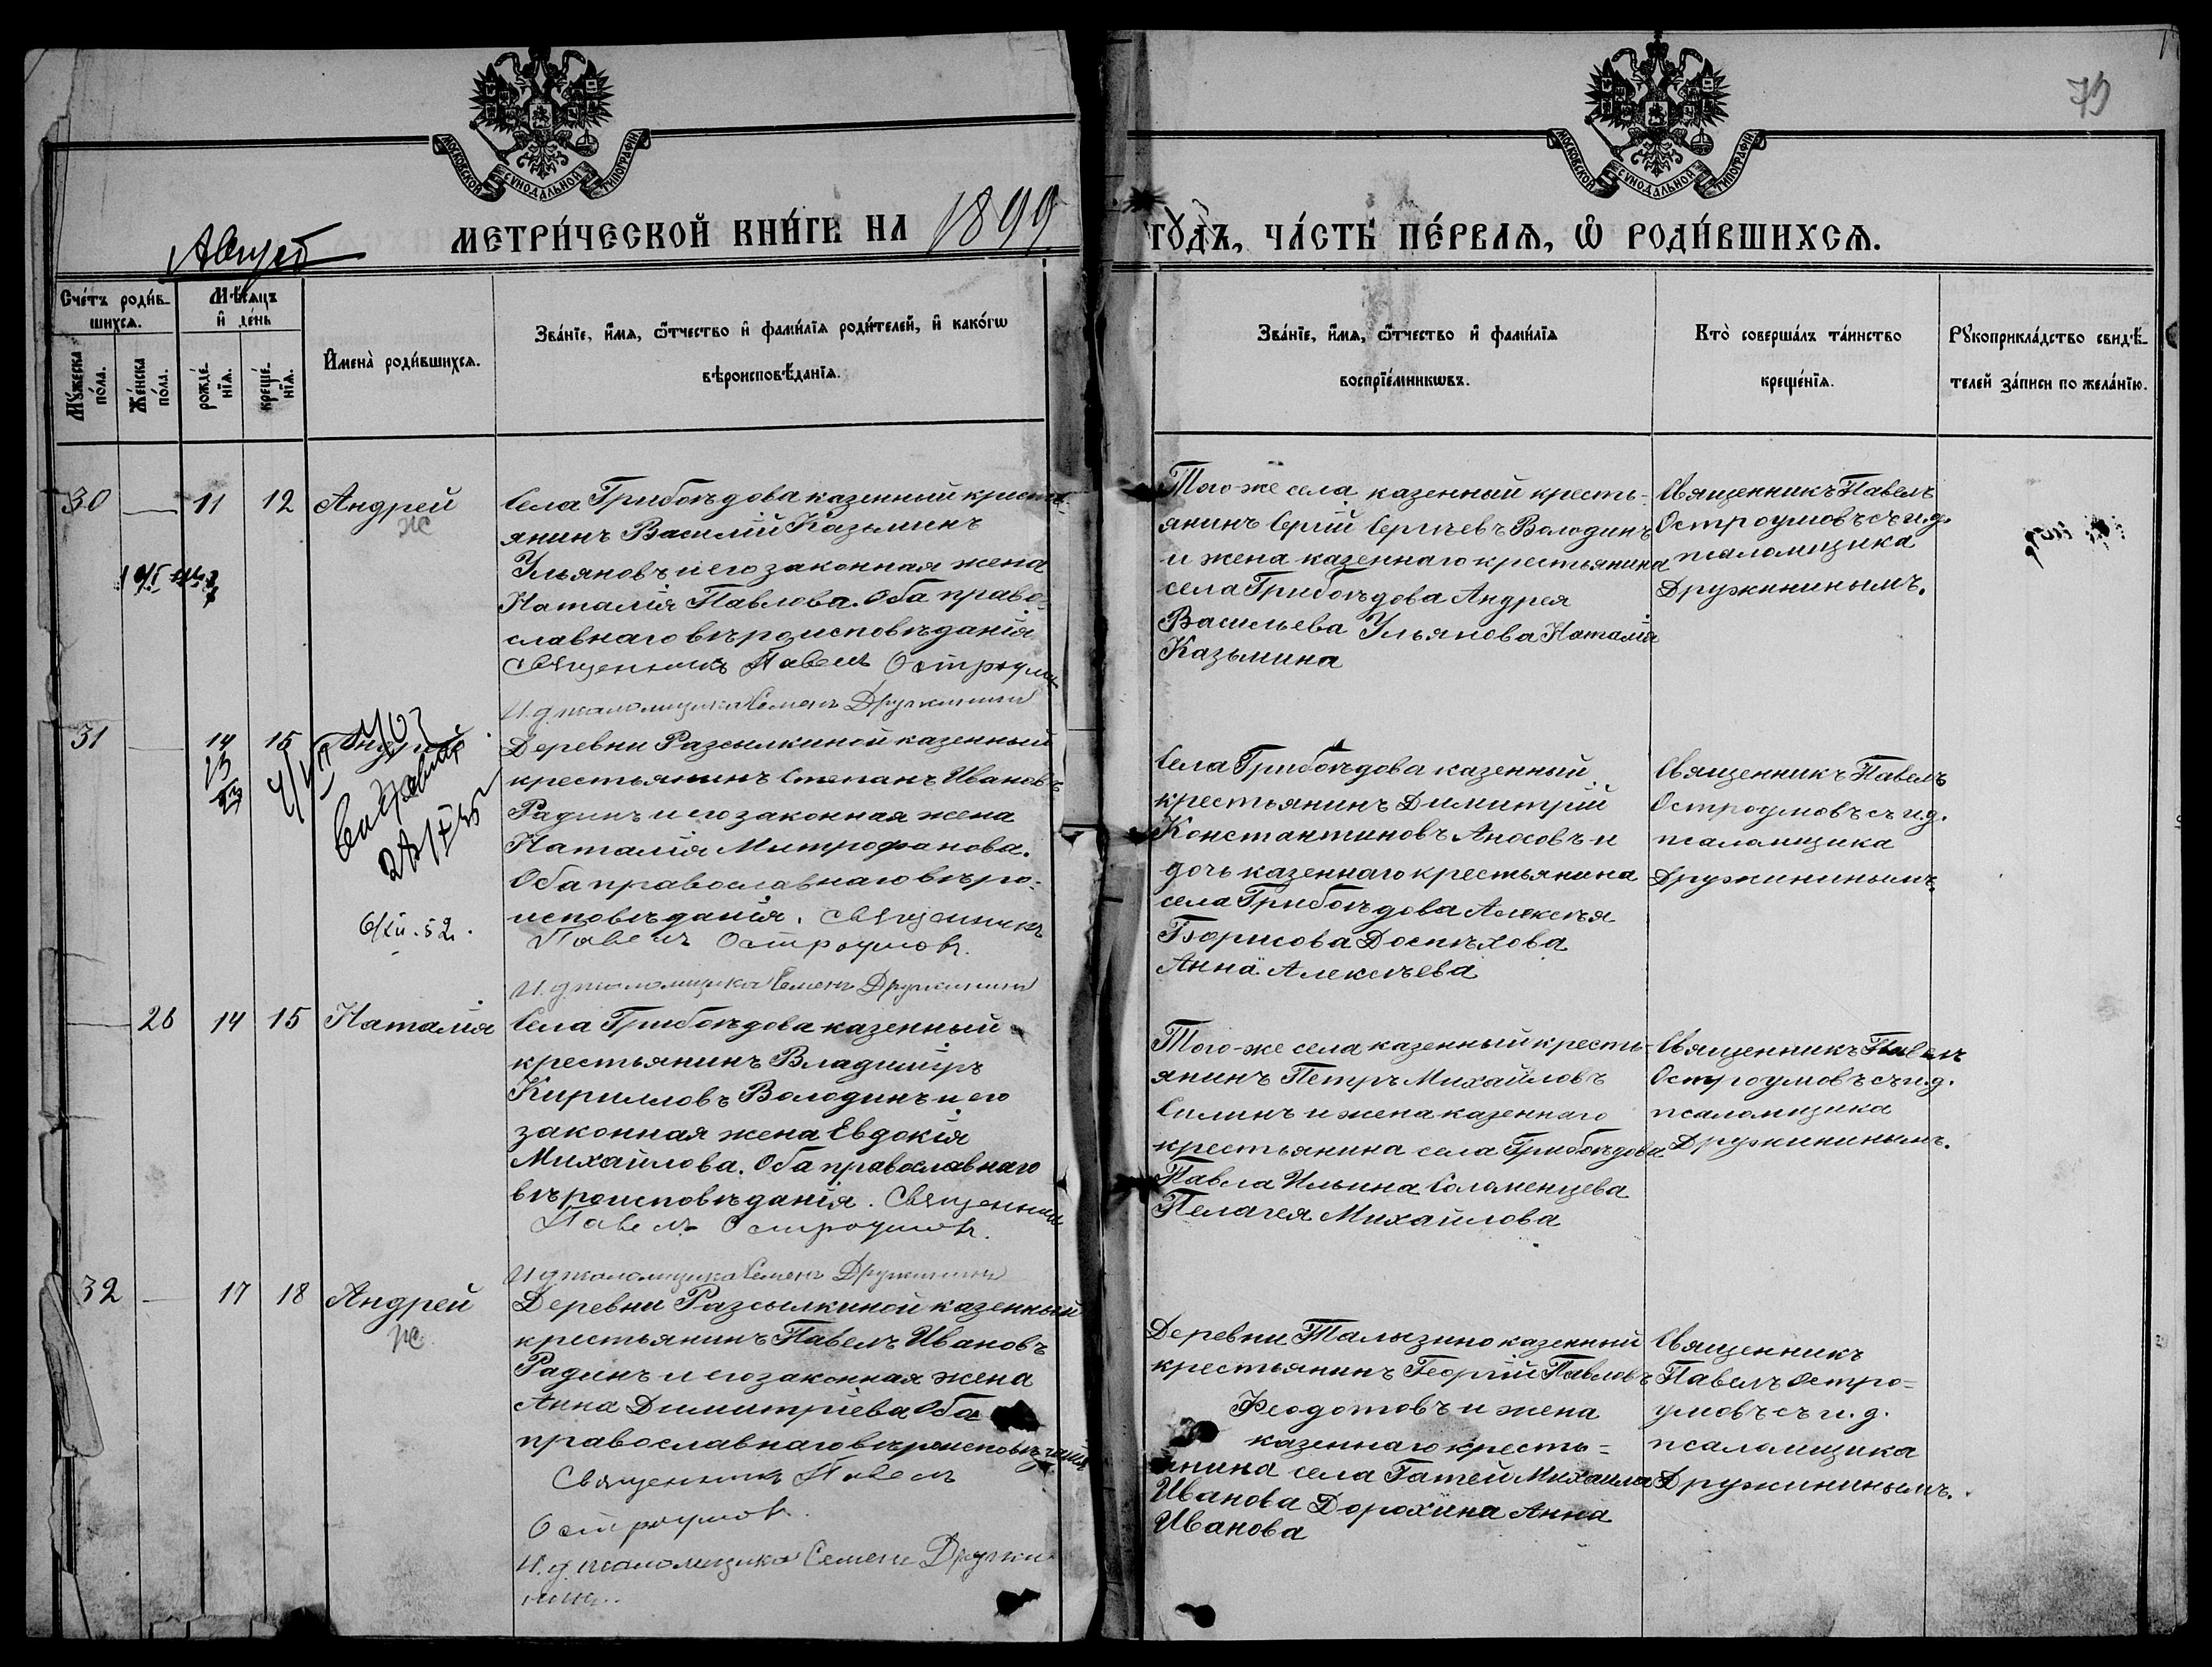 МОСКОВСКОЙ СѴНОДАЛЬНОЙ ТИПОГРАФІИ
МОСКОВСКОЙ СѴНОДАЛЬНОЙ ТИПОГРАФІИ
79
Августъ
МЕТРИ́ЧЕСКОЙ КНИ́ГѢ НА 1899
ГО́ДЪ, ЧА́СТЬ ПЕ́РВАѦ, Ѡ҆ РОДИ́ВШИХСѦ.
Сче́тъ роди́в-
шихсѧ.
Мꙋ́жеска по́ла.
Же́нска по́ла.
Мѣ́сѧцъ
и҆ де́нь
рожде́-нїѧ.
креще́-нїѧ.
И҆мена̀ роди́вшихсѧ.
Зва́нїе, и҆́мѧ, ѻ҆́тчество и҆ фами́лїѧ роди́телей, и҆ како́гѡ
вѣроисповѣ́данїѧ.
Зва́нїе, и҆́мѧ, ѻ҆́тчество и҆ фами́лїѧ
воспрїе́мникѡвъ.
Кто̀ соверша́лъ та́инство
креще́нїѧ.
Рꙋкоприкла́дство свидѣ́-
телей за́писи по жела́нїю.
30 — 11 12 Андрей
Села Грибоѣдова казенный кресть-
янинъ Василій Казьминъ
Ульяновъ и его законная жена
Наталія Павлова. Оба право-
славнаго вѣроисповѣданія
Священникъ Павелъ Остроумо
И. д. псаломщика Семенъ Дружининъ
Того-же села казенный кресть-
янинъ Сергій Сергѣевъ Володинъ
и жена казеннаго крестьянина
села Грибоѣдова Андрея
Васильева Ульянова Наталія
Казьмина
Священникъ Павелъ
Остроумовъ съ и.д.
псаломщика
Дружининымъ.
31 — 14 15
Деревни Разсылкиной казенный
крестьянинъ Степанъ Ивановъ
Радинъ и его законная жена
Наталія Митрофанова.
Оба православнаго вѣро-
исповѣданія. Священникъ
Павелъ Остроумовъ.
И. д. псаломщика Семенъ Дружининъ
6/XII.52.
Села Грибоѣдова казенный
крестьянинъ Димитрій
Константиновъ Аносовъ и
дочь казеннаго крестьянина
села Грибоѣдова Алексѣя
Борисова Доспѣхова
Анна Алексѣева
Священникъ Павелъ
Остроумовъ съ и.д.
псаломщика
Дружининымъ.
— 26 14 15 Наталія
Села Грибоѣдова казенный
крестьянинъ Владиміръ
Кирилловъ Володинъ и его
законная жена Евдокія
Михайлова. Оба православнаго
вѣроисповѣданія. Священникъ
Павелъ Остроумовъ.
И. д. псаломщика Семенъ Дружининъ
Того-же села казенный кресть-
янинъ Петръ Михайловъ
Силинъ и жена казеннаго
крестьянина села Грибоѣдова
Павла Ильина Соломенцева
Пелагея Михайлова
Священникъ Павелъ
Остроумовъ съ и.д.
псаломщика
Дружининымъ.
32 — 17 18 Андрей
Деревни Разсылкиной казенный
крестьянинъ Павелъ Ивановъ
Радинъ и его законная жена
Анна Димитріева Оба
православнаго вѣроисповѣданія
Священникъ Павелъ
Остроумовъ.
И. д. псаломщика Семенъ Дружи-
нинъ.
Деревни Талызино казенный
крестьянинъ Георгій Павловъ
Феодотовъ и жена
казеннаго кресть-
янина села Гатей Михаила
Иванова Дорохина Анна
Иванова
Священникъ
Павелъ Остро-
умовъ съ и.д.
псаломщика
Дружининымъ.